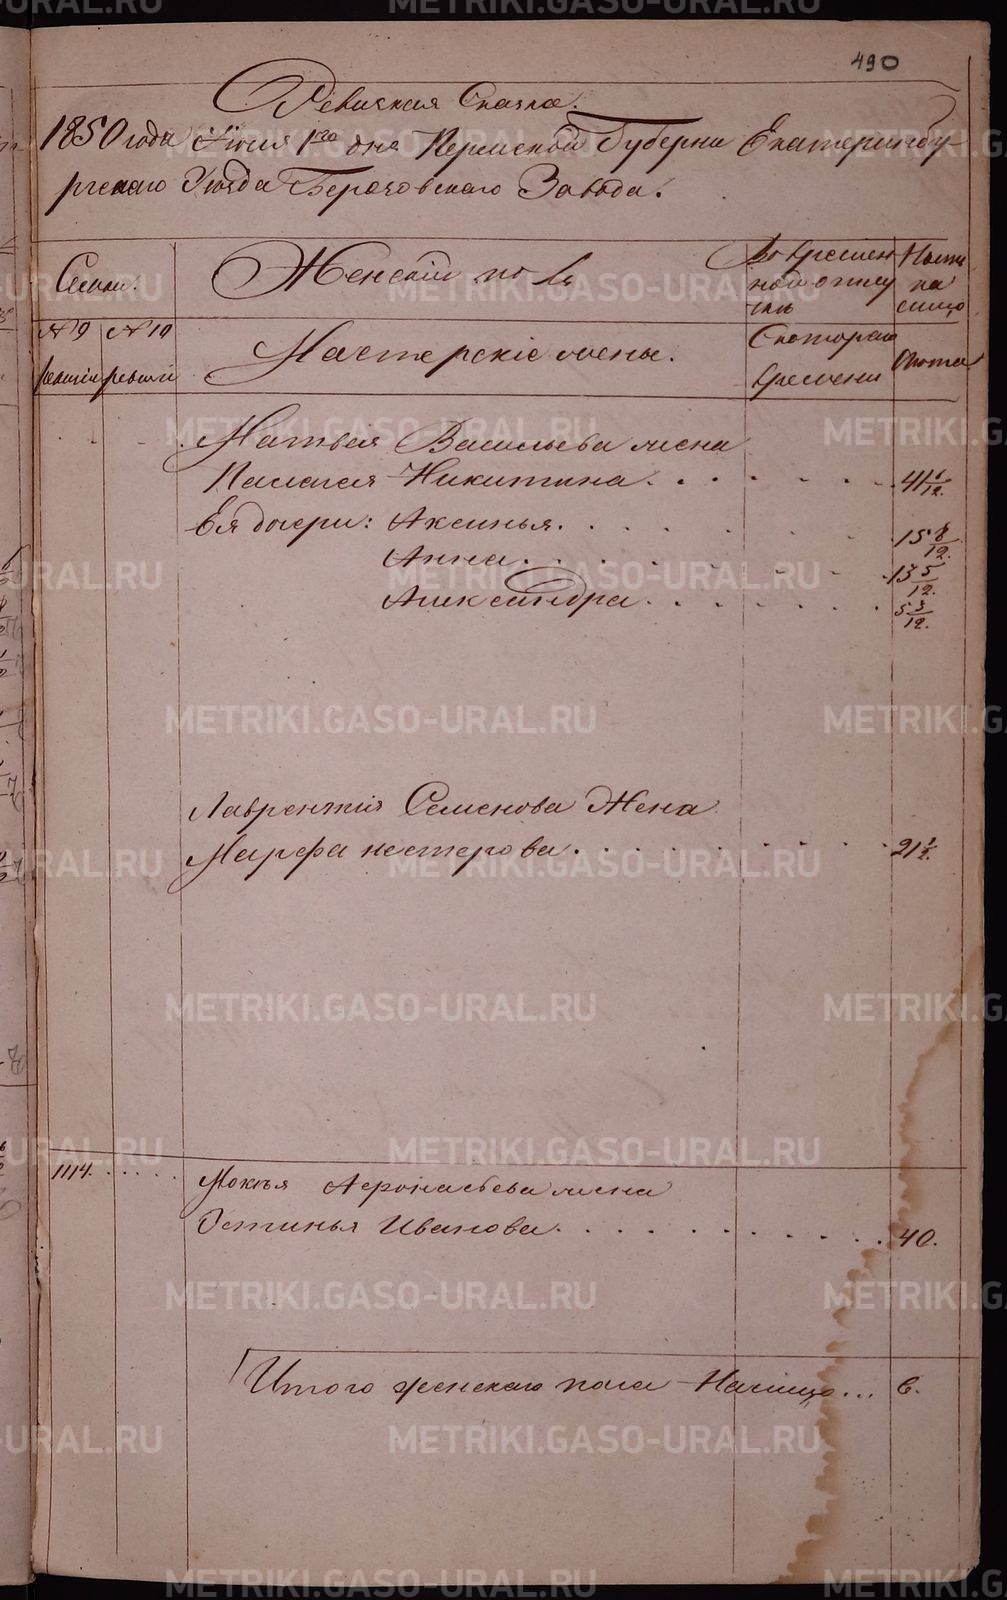 490
Ревижская Сказка.
1850 года Июля 1го дня Пермской Губерни Екатеринбу
ргскаго Уезда Березовскаго Завода.
Семьи.
Женский полъ
Во времен
ной отлу
чкѣ
Нали
цо
№ 9 № 10
ревизии ревизии
Мастерскіе жены.
Скотораго
времени
Лета
Матвѣя Васильева жена
Палагея Никитина . . . . . . . 41 6/12.
Ея дочери: Аксинья . . . . . . . 15 8/12.
Анна . . . . . . . 13 5/12.
Александра . . . . . . . 5 3/12.
Лаврентія Семенова Жена
Марфа нестерова . . . . . . . . 21 1/2.
1114. . . . . .
Мокѣя Афонасьева жена
Устинья Иванова . . . . . . . . . 40.
Итого женскаго пола Налицо ... 6.
METRIKI.GASO-URAL.RU